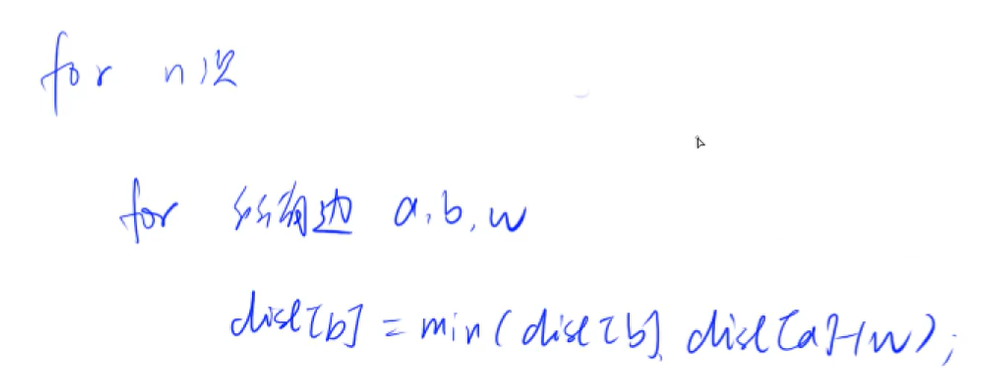 for n次
for 所有边 a,b,w
dist[b] = min(dist[b], dist[a]+w);